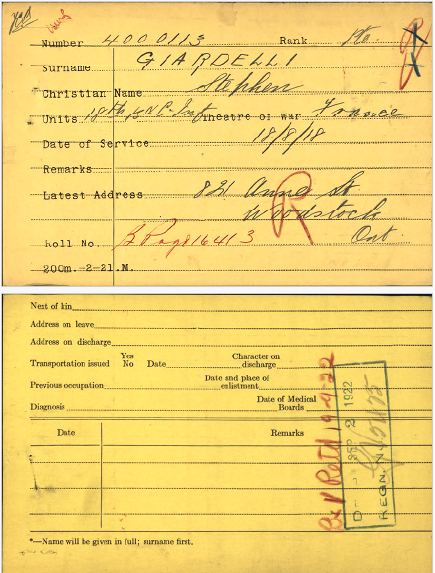 Number 4000113 Rank Pte.
Surname GIARDELLI
Christian Name Stephen
Units 18th Bn Theatre of War France
Date of Service 18/8/18
Remarks
Latest Address 821 Anne St
Woodstock
Ont
Roll No. B Page 16413
200m.-2-21.M.
R
Next of kin
Address on leave
Address on discharge
Transportation issued Yes No Date Character on discharge
Previous occupation Date and place of enlistment
Diagnosis Date of Medical Boards
Date Remarks
*—Name will be given in full; surname first.
SEP 2 1922
REGN. No